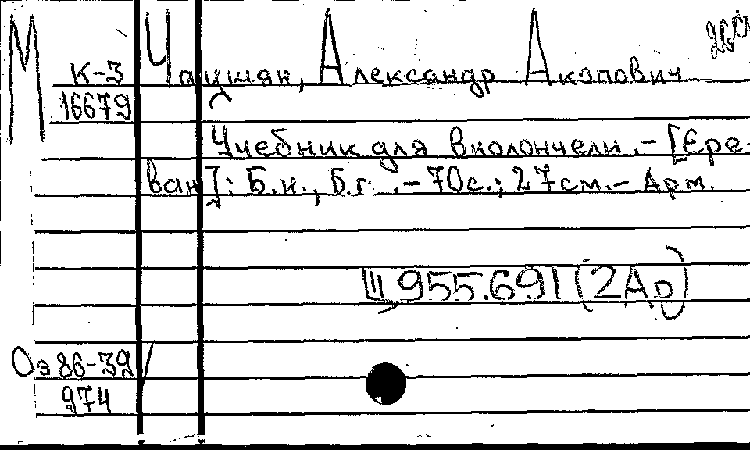 М
К-3 Чаушян, Александр Акопович
16679
Учебник для виолончели. - [Ере-
ван]: Б.и., б.г. - 70с.; 27см. - Арм.
Ш 955.691 (2Ар)
Оз 86-39
974